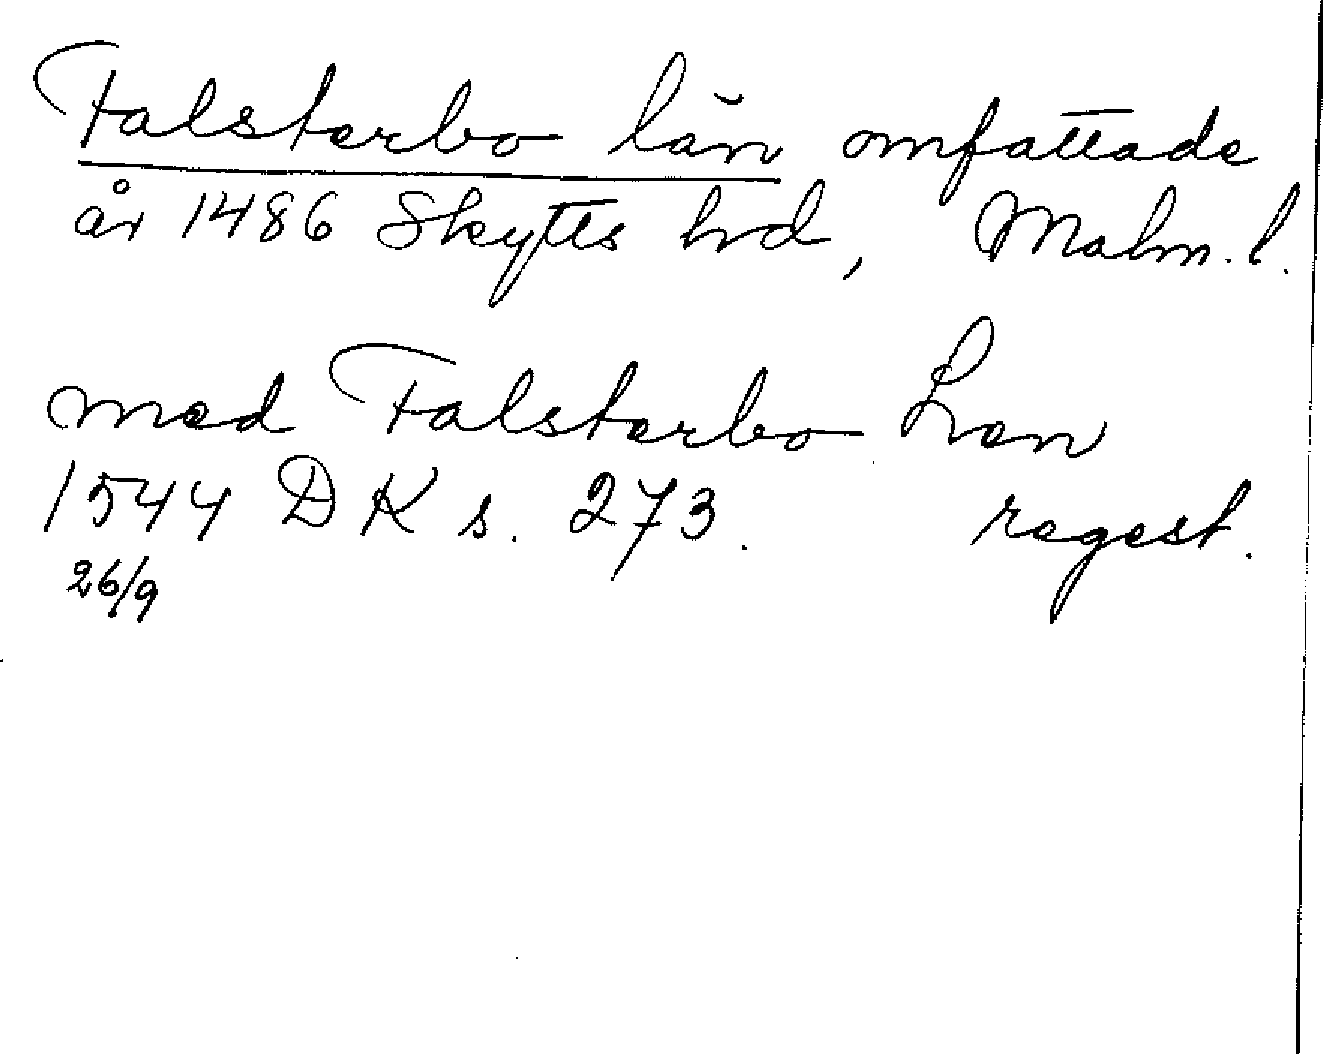 Falsterbo län omfattade
år 1486 Skytts hd, Malm. l.
med Falsterbo Len
1544 DK s. 273. regest.
26/9